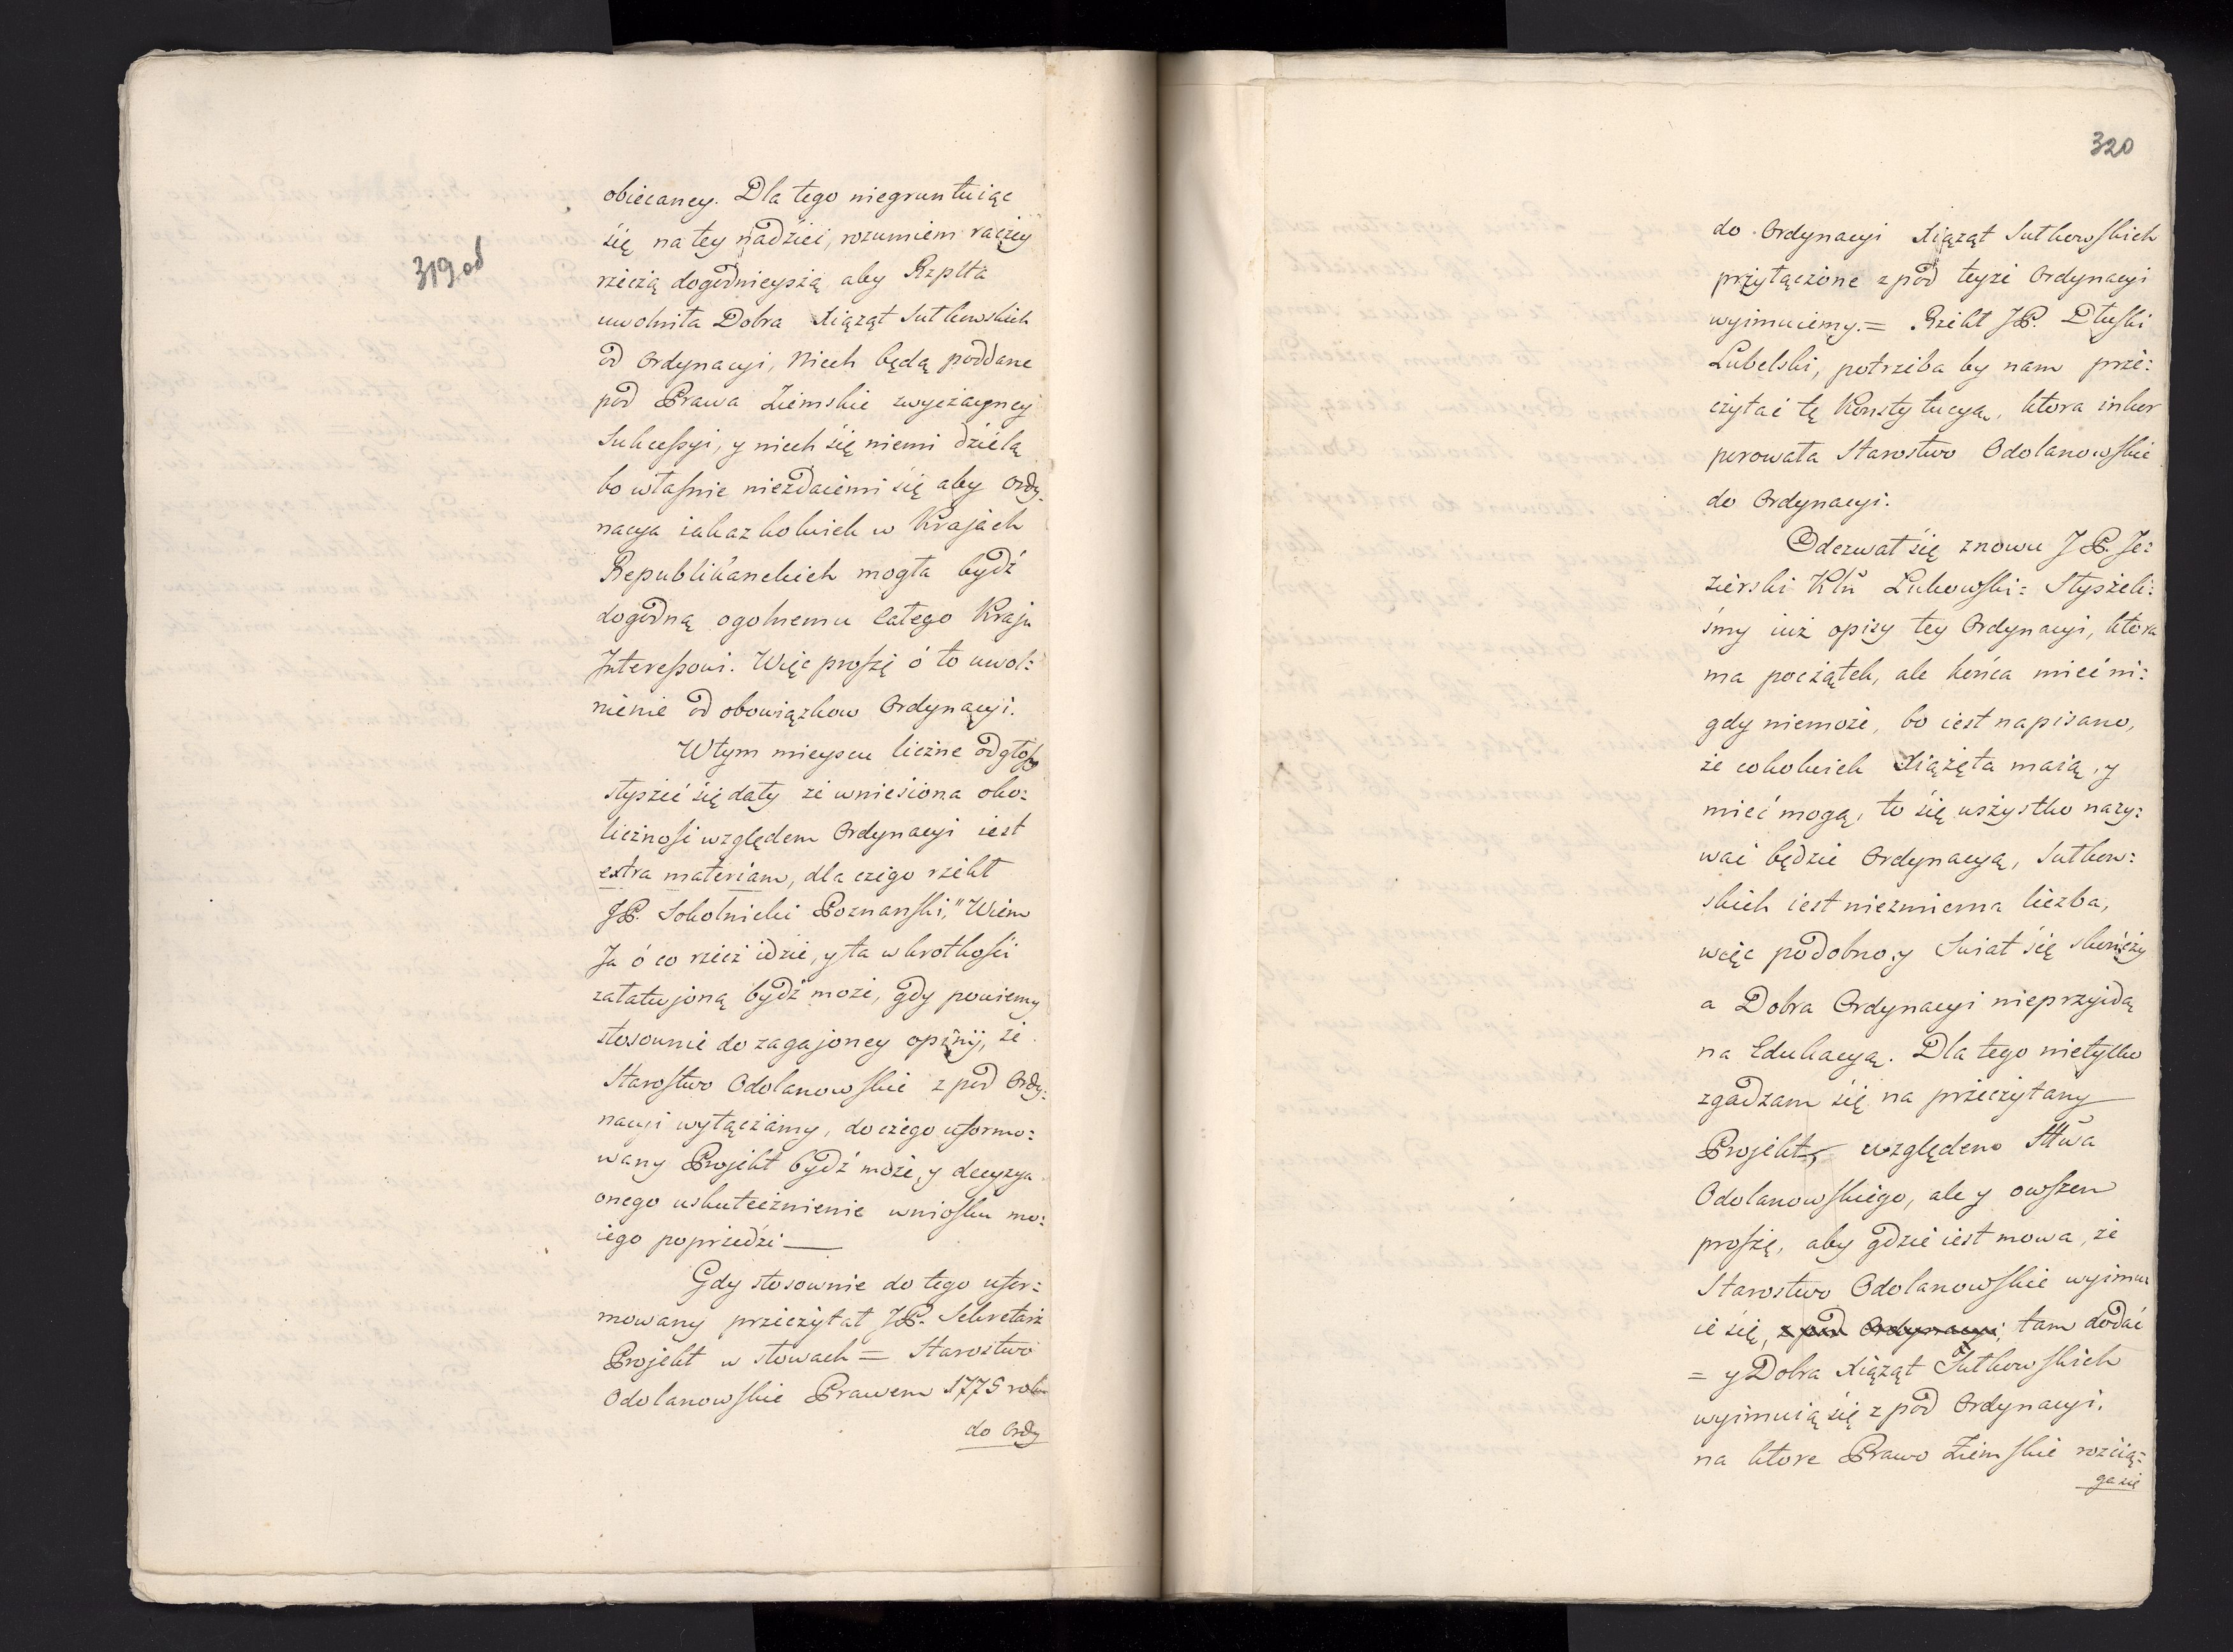 319.od
obiecaney. Dla tego niegruntuiąc
się na tey nadziei, rozumiem raczey
rzeczą dogodnieyszą, aby Rzplta
uwolniła Dobra Xiążąt Sułkowskich
od Ordynacyi, niech będą poddane
pod Prawa Ziemskie zwyczayney
Sukceſsyi, y niech się niemi dzielą
bo właſnie niezdaiemi się aby Ordy-
nacya iakazkolwiek w Krajach
Republikanckich mogła bydź
dogodną ogolnemu całego Kraju
Jntereſsowi. Więc proſzę ó to uwol=
nienie od obowiązkow Ordynacyi.
W tym mieyscu liczne odgłoſy
słyszeć się dały że wniesiona oko=
licznośc względem Ordynacyi iest
extra materiam, dla czego rzekł
JP. Sokolnicki Poznanſki, "Wiem
Ja ó co rzecz idzie, y ta w krotkoſci
załatwjoną bydź może, gdy powiemy
stosownie do zagajoney opinij, że
Staroſtwo Odolanowſkie z pod Ordy=
nacyi wyłączamy, do czego uformo=
wany Projekt bydź może, y decyzya
onego uskutecznienie wnioſku mo=
iego poprzedzi —
Gdy stosownie do tego ufor=
mowany przeczytał JP. Sekretarz
Projekt w słowach = Starostwo
Odolanowſkie Prawem 1775 roku
do Ordy
320
do Ordynacyi Xiążąt Sułkowſkich
przyłączone z pod teyże Ordynacyi
wyimuiemy. = Rzekł JP. Dłuſki
Lubelski, potrzeba by nam prze=
czytać tę Konstytucyą, ktora inkor
porowała Starostwo Odolanowſkie
do Ordynacyi.
Odezwał się znowu JP. Je=
zierski Kłn Łukowſki = Słyszeli=
śmy iuż opisy tey Ordynacyi, ktora
ma początek, ale końca mieć ni=
gdy niemoże, bo iest napisano,
że cokolwiek Xiążęta maią, y
mieć mogą, to się wszystko nazy=
wać będzie Ordynacyą, Sułkow=
skich iest niezmierna liczba,
więc podobno y Swiat się skończy
a Dobra Ordynacyi nieprzyidą
na Edukacyą. Dla tego nietylko
zgadzam się na przeczytany
Projekt, względem Sttwa
Odolanowſkiego, ale y owſzem
proſzę, aby gdzie iest mowa, że
Starostwo Odolanowſkie wyimu
ie się, z pod Ordynacyi, tam dodać
= y Dobra Xiążąt Sułkowſkich
wyimuią się z pod Ordynacyi,
na ktore Prawo Ziemſkie rozcią=
ga się